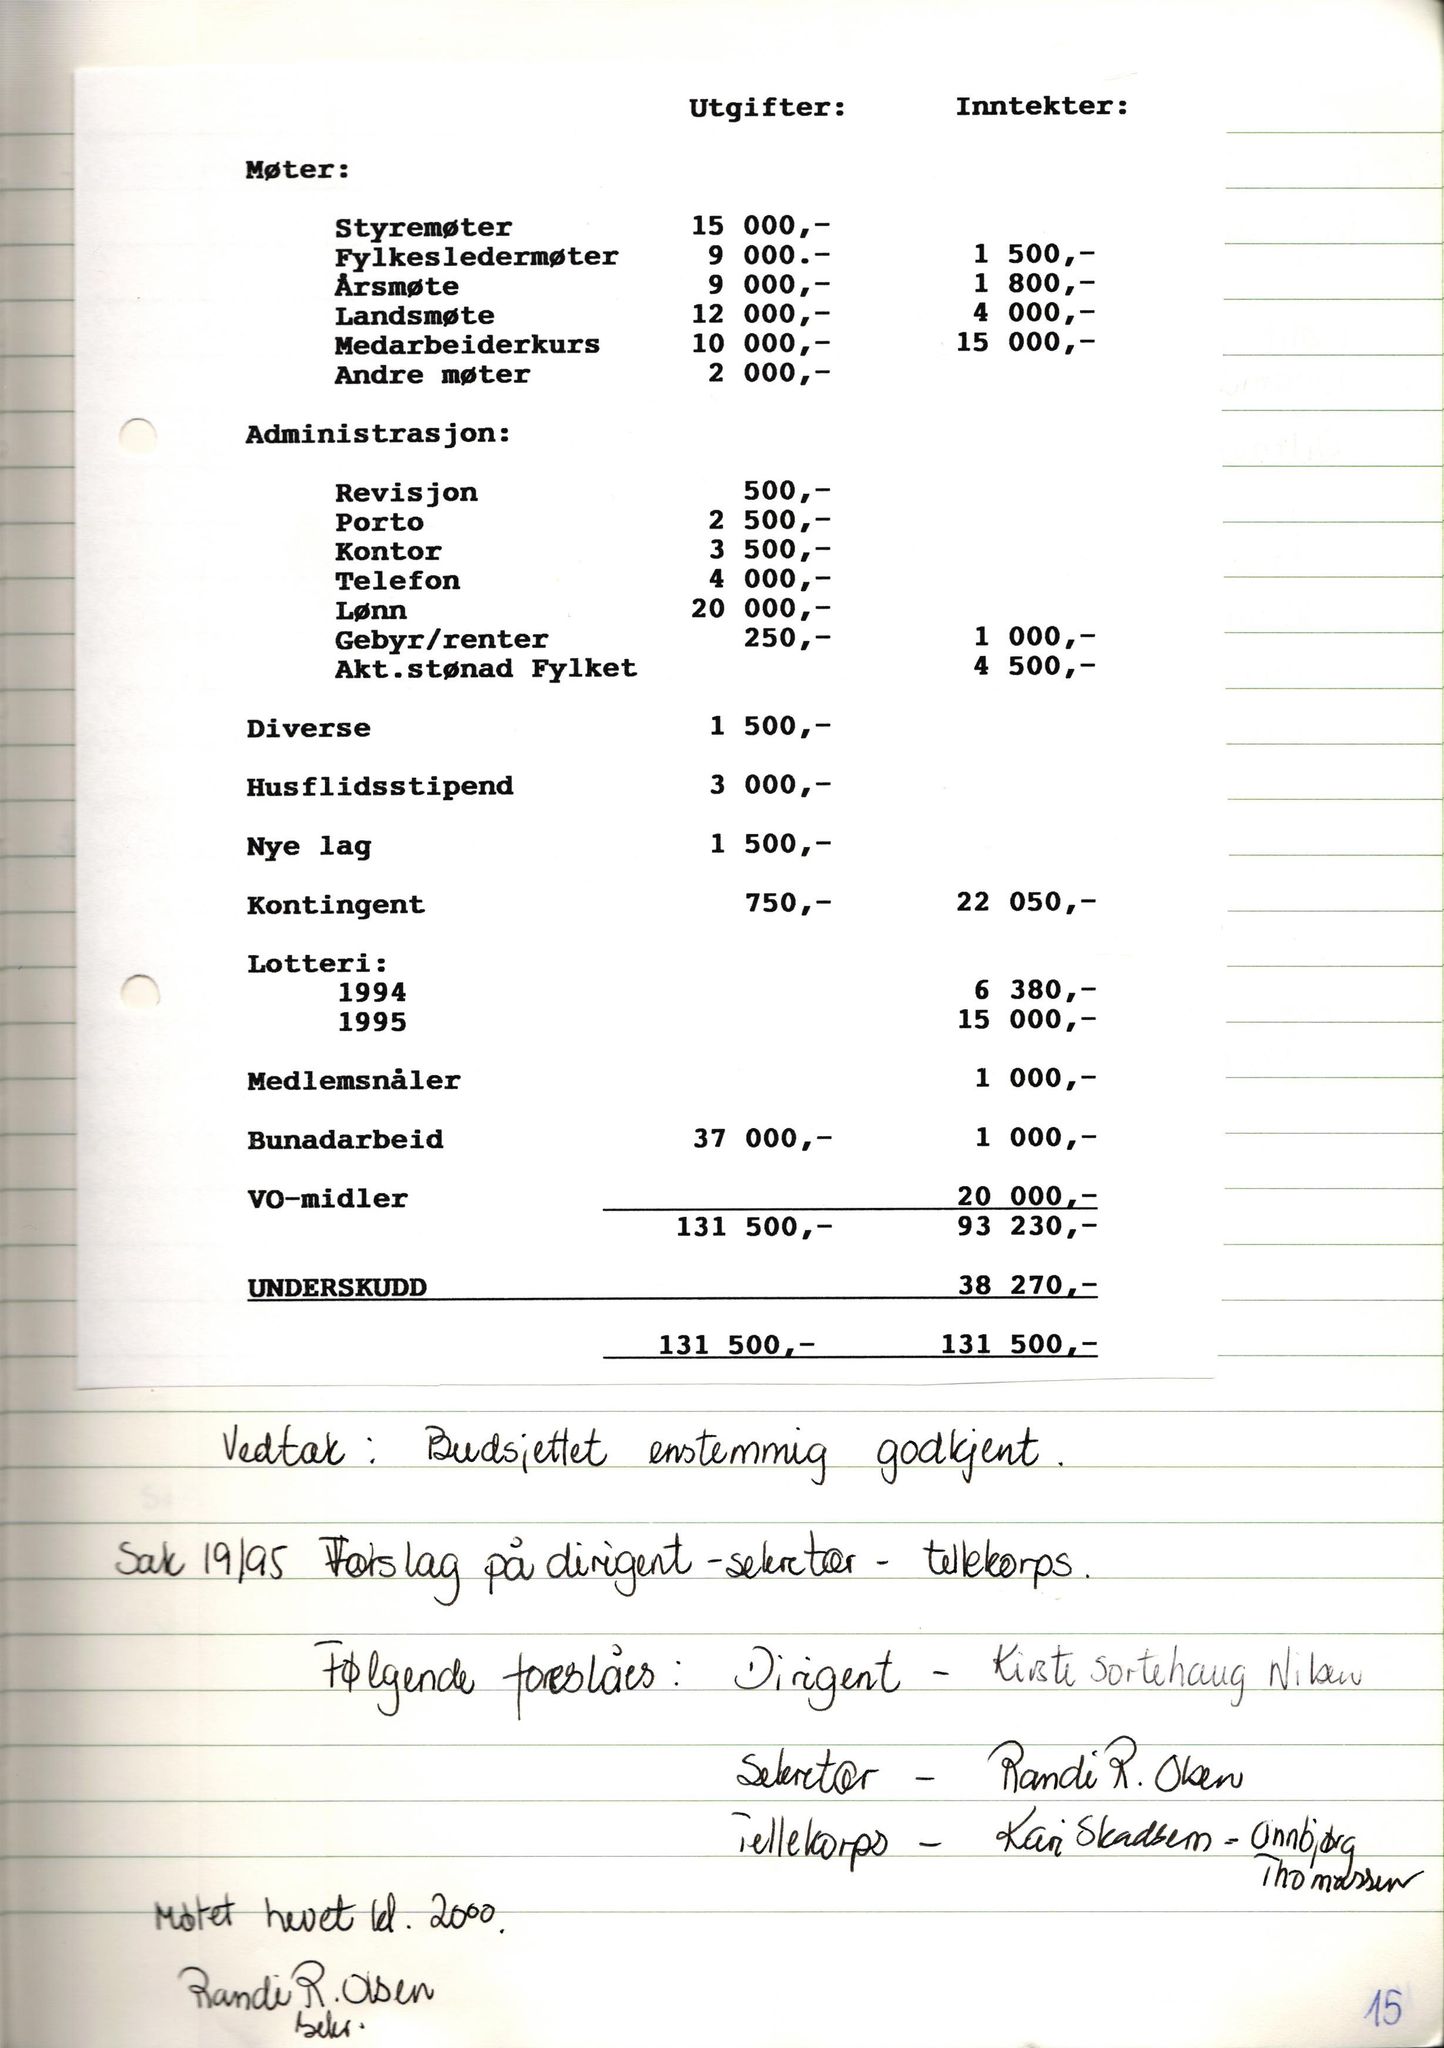 Utgifter: Inntekter:
Møter:
Styremøter 15 000,-
Fylkesledermøter 9 000.- 1 500,-
Årsmøte 9 000,- 1 800,-
Landsmøte 12 000,- 4 000,-
Medarbeiderkurs 10 000,- 15 000,-
Andre møter 2 000,-
Administrasjon:
Revisjon 500,-
Porto 2 500,-
Kontor 3 500,-
Telefon 4 000,-
Lønn 20 000,-
Gebyr/renter 250,- 1 000,-
Akt.stønad Fylket 4 500,-
Diverse 1 500,-
Husflidsstipend 3 000,-
Nye lag 1 500,-
Kontingent 750,- 22 050,-
Lotteri:
1994 6 380,-
1995 15 000,-
Medlemsnåler 1 000,-
Bunadarbeid 37 000,- 1 000,-
VO-midler 20 000,-
131 500,- 93 230,-
UNDERSKUDD 38 270,-
131 500,- 131 500,-
Vedtak: Budsjettet enstemmig godkjent.
Sak 19/95 Forslag på dirigent - sekretær - tellekorps.
Følgende foreslåes: Dirigent - Kirste Sortehaug Nilsen
Sekretær - Randi R. Olsen
Tellekorps - Kari Skadsem - Annbjørg
Thomassen
Møtet hevet kl. 2000.
Randi R. Olsen
sekr.
15